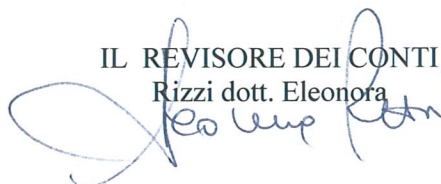 IL REVISORE DEI CONTI
Rizzi dott. Eleonora